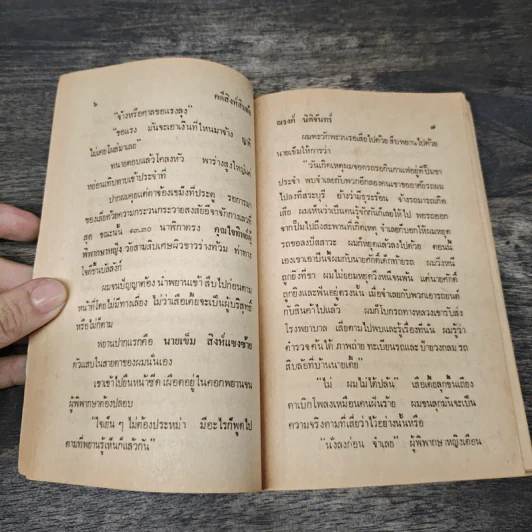 ๖ คดีสิงห์สินสมิง
“จ้างหรือศาลขอแรงลุง”
“ขอแรง มันจะเอาเงินที่ไหนมาจ้าง
ไม่เคยโผล่มาเลย
ทนายตอบแล้วโคลงหัว พาร่างสูงใหญ่
หย่อนแท็บตามเข้าประจำที่
ปากผมคุยแต่ตาจ้องเขม็งที่ประตู รอการมา
ของเสี่ยด้วยความกระวนกระวายสงสัยอือจากักกางเลวที่
สุด ขณะนั้น ๑๓.๓๐ นาฬิกาตรง คุณใจทิพย์ผู้
พิพากษาหญิง วัยสามสิบเศษผิวขาวร่างท้วม ท่าทาง
ใจดีขึ้นบัลลังก์
ผมจนปัญญาต้องนำพยานเข้าสืบไปก่อนตาม
หน้าที่โดยไม่มีทางเลี่ยง ไม่ว่าเสี่ยเตี้ยจะเป็นผู้บริสุทธิ์
หรือไม่ก็ตาม
พยานปากแรกคือ นายเข็ม สิงห์แซงซ้าย
ตัวแสบในสายตาของผมนั่นเอง
เขาเข้าไปยืนหน้าซีดเผือดอยู่ในคอกพยานจน
ผู้พิพากษาต้องปลอบ
“ใจเย็น ๆ ไม่ต้องประหม่า มีอะไรก็พูดไป
ตามที่พยานรู้เห็นก็แล้วกัน”
ณรงค์ นิติจันทร์ ๗
ผมทะรักทะวนรอเสี่ยไปด้วย สืบพยานไปด้วย
นายเข็มให้การว่า
“วันเกิดเหตุผมจอดรถรอกินกาแฟอยู่ที่ปั๊มขา
ประจำ พบจำเลยกับพวกอีกสองคนเข้าขออาศัยรถผม
ไปลงที่สระบุรี อ้างว่ามีธุระร้อน จ้างรถมารถเกิด
เสีย ผมเห็นว่าเป็นคนรู้จักกันก็เลยให้ไป พอรถออก
จากปั๊มไปถึงสะพานที่เกิดเหตุ จำเลยก็บอกให้ผมหยุด
รถขอลงปัสสาวะ ผมก็หยุดแล้วลงไปด้วย ตอนนี้
เองเขาเอาปืนจี้ผมกับนายศักดิ์เด็กท้ายรถ ผมวิ่งหนี
ถูกยิงที่ขา ผมไม่ยอมหยุดวิ่งหนีจนพ้น แต่นายศักดิ์
ถูกยิงและฟันอยู่ตรงนั้น เมื่อจำเลยกับพวกเอารถยนต์
กับสินค้าไปแล้ว ผมก็โบกรถทางหลวงเขารับส่ง
โรงพยาบาล เสี่ยตามไปพบและรู้เรื่องที่นั่น ผมรู้ว่า
ตำรวจค้นได้ ภาพถ่าย ทะเบียนรถและ ป้ายวงกลม รถ
สิบล้อที่บ้านนายเตี้ย”
“ไม่ ผมไม่ได้ปล้น” เสี่ยเตี้ยลุกขึ้นเถียง
ตาเบิกโพลงเหมือนคนฝันร้าย ผมขนลุกมันจะเป็น
ความจริงตามที่เสี่ยว่าไว้อย่างนั้นหรือ
“นั่งลงก่อน จำเลย” ผู้พิพากษาหญิงเตือน